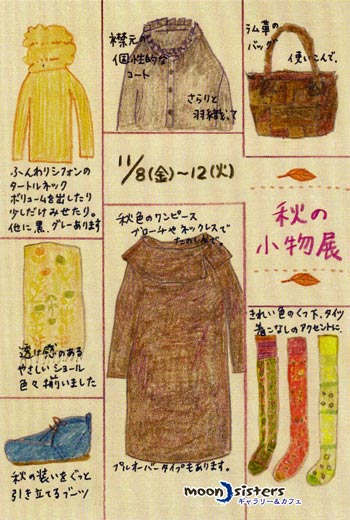 襟元が
個性的な
コート
さらりと
羽織って
ラム革の
バッグ
使いこんで、
ふんわりシフォンの
タートルネック
ボリュームを出したり
少しだけみせたり。
他に黒、グレーあります
11/8(金)〜12(火)
秋の
小物展
秋色のワンピース
ブローチや ネックレスで
たのしんで。
透け感のある
やさしい ショール
色々 揃いました
きれい色のくつ下、タイツ
着こなしのアクセントに
秋の装いをぐっと
引き立てるブーツ
プルオーバータイプもあります。
moon sisters
ギャラリー&カフェ